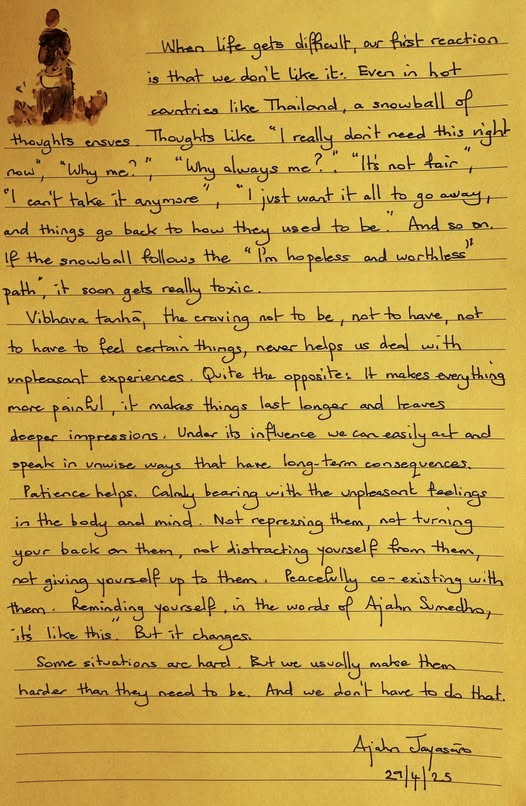 When life gets difficult, our first reaction
is that we don't like it. Even in hot
countries like Thailand, a snowball of
thoughts ensues. Thoughts like "I really don't need this right
now", "Why me?", "Why always me?". "It's not fair",
"I can't take it anymore", "I just want it all to go away,
and things go back to how they used to be." And so on.
If the snowball follows the "I'm hopeless and worthless"
path", it soon gets really toxic.
Vibhava tanhā, the craving not to be, not to have, not
to have to feel certain things, never helps us deal with
unpleasant experiences. Quite the opposite: It makes everything
more painful, it makes things last longer and leaves
deeper impressions. Under its influence we can easily act and
speak in unwise ways that have long-term consequences.
Patience helps. Calmly bearing with the unpleasant feelings
in the body and mind. Not repressing them, not turning
your back on them, not distracting yourself from them,
not giving yourself up to them. Peacefully co-existing with
them. Reminding yourself, in the words of Ajahn Sumedho,
"it's like this". But it changes.
Some situations are hard. But we usually make them
harder than they need to be. And we don't have to do that.
Ajahn Jayasāro
29/4/25